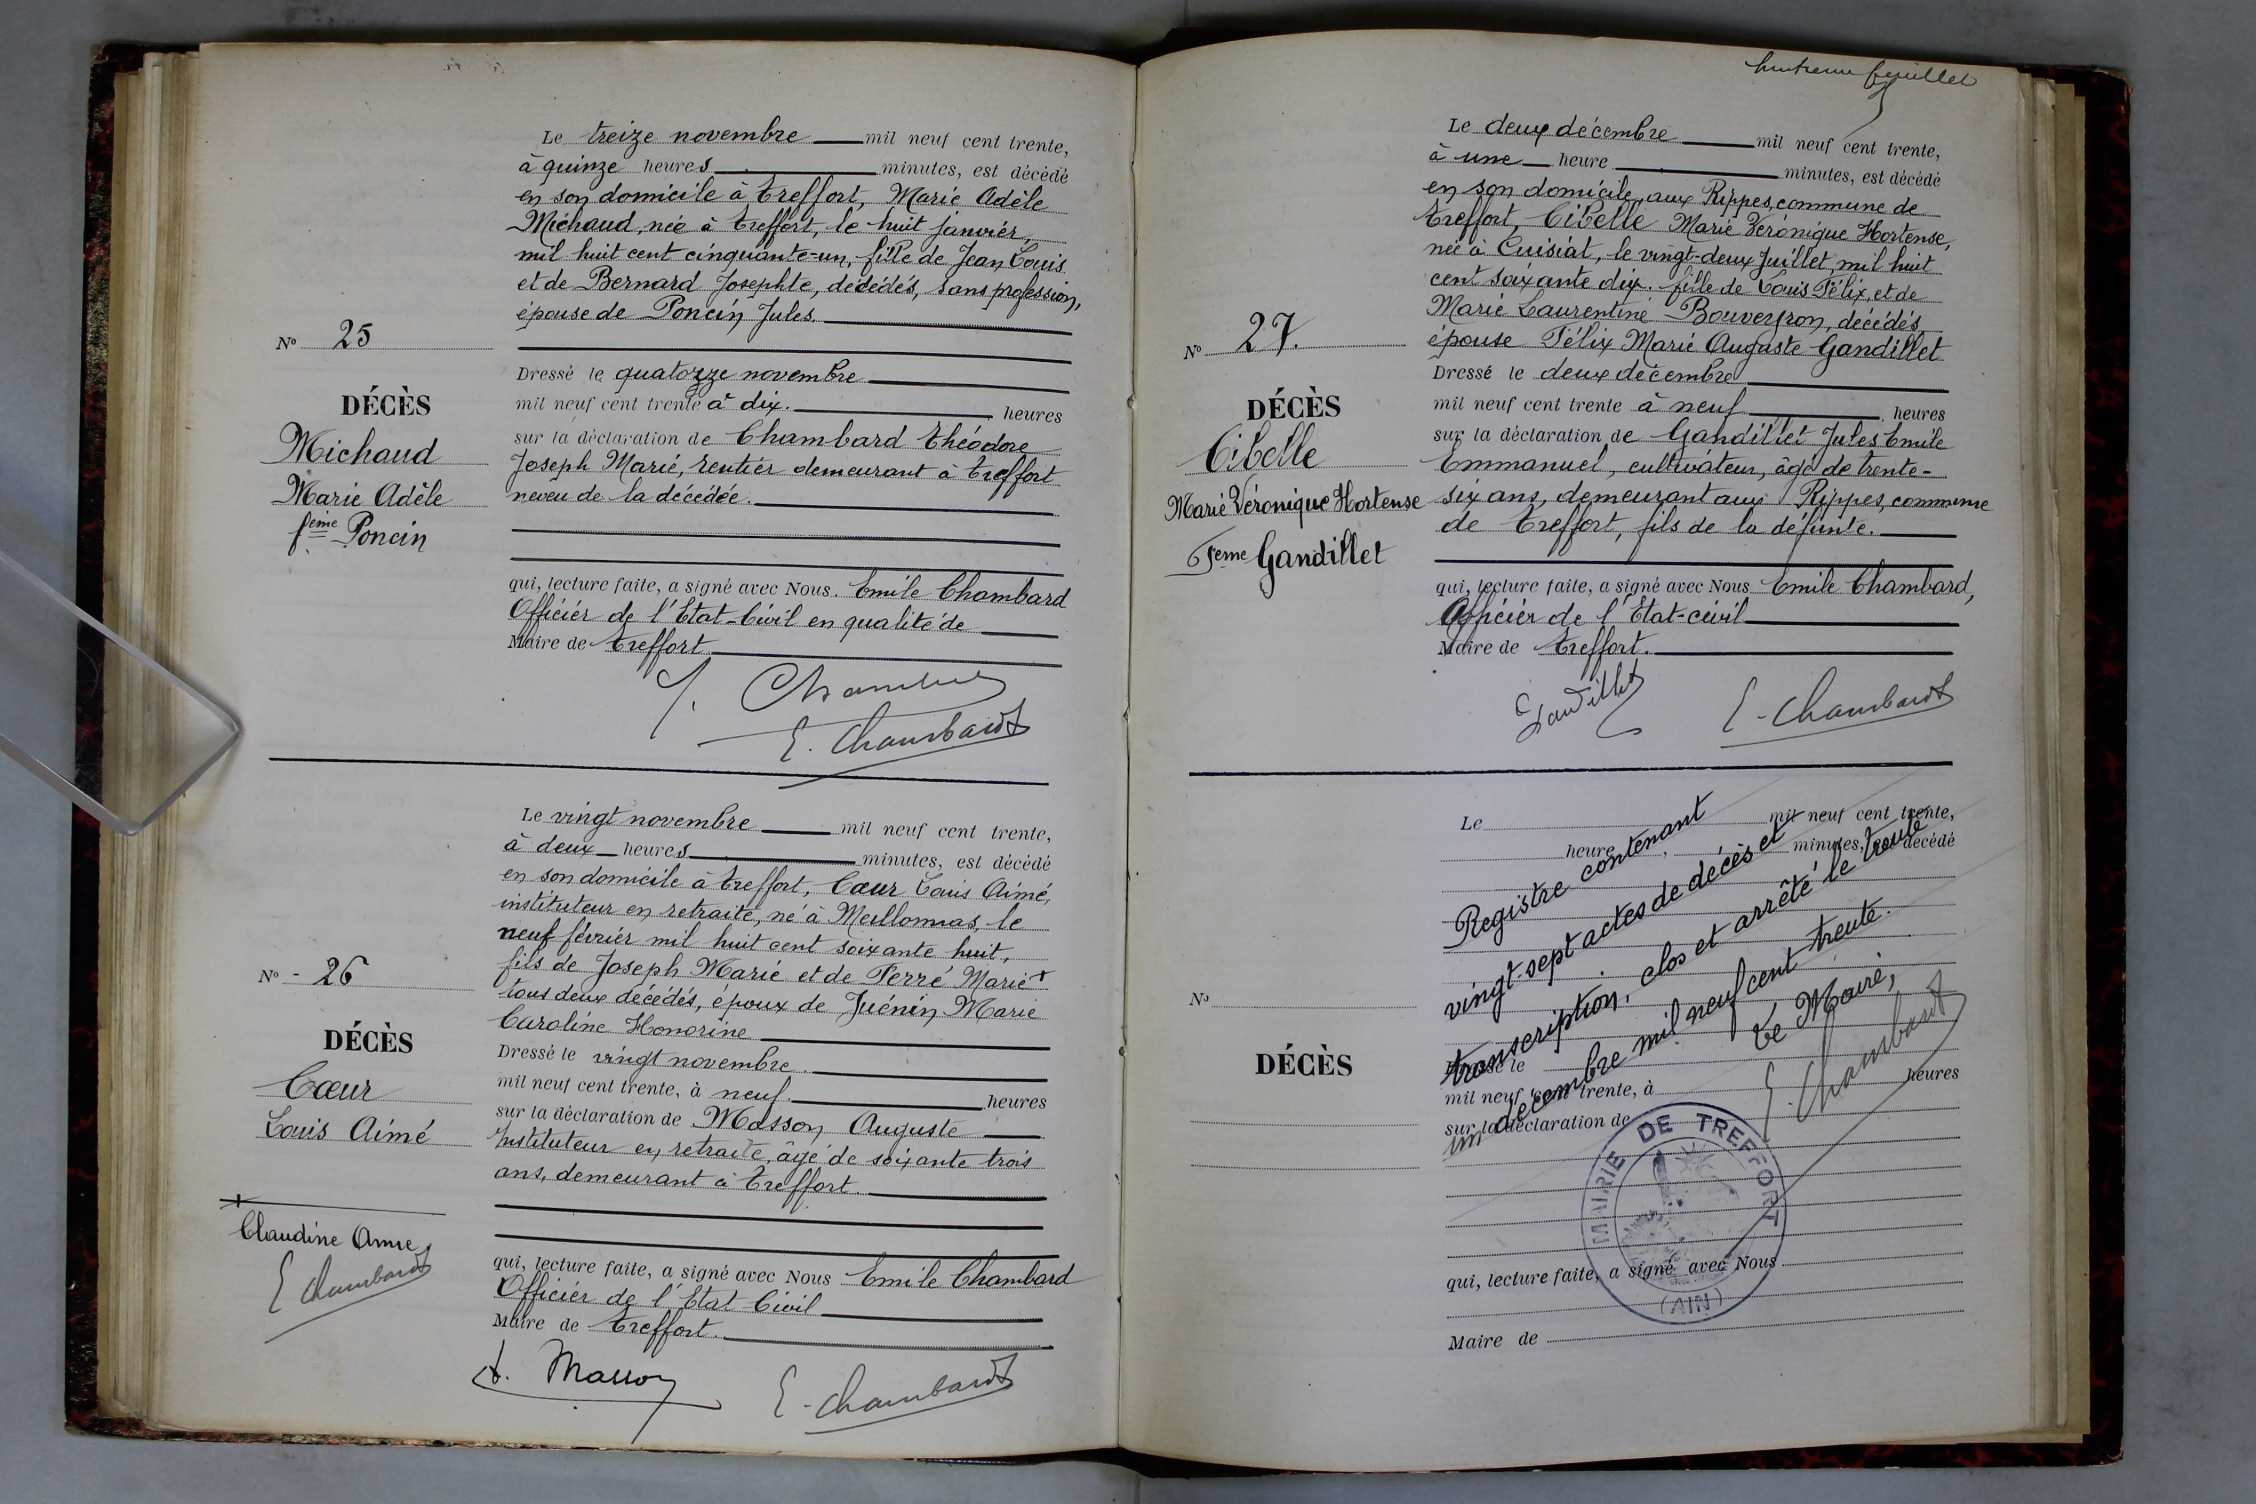 Le treize novembre mil neuf cent trente,
à quinze heures minutes, est décédé
en son domicile à Treffort, Marie Adèle
Michaud, née à Treffort, le huit janvier,
mil huit cent cinquante-un, fille de Jean Louis
et de Bernard Josephte, décédés, sans profession,
épouse de Poncin Jules.
No 25
DÉCÈS
Michaud
Marie Adèle
feme Poncin
Dressé le quatorze novembre
mil neuf cent trente à dix. heures
sur la déclaration de Chambard Théodore
Joseph Marie, rentier demeurant à Treffort
neveu de la décédée.
qui, lecture faite, a signé avec Nous. Emile Chambard
Officier de l'Etat-Civil en qualité de
Maire de Treffort.
E. Chambard
Le vingt novembre mil neuf cent trente,
à deux heures minutes, est décédé
en son domicile à Treffort, Cœur Louis Aimé,
instituteur en retraite, né à Meillonnas, le
neuf février mil huit cent soixante huit,
fils de Joseph Marie et de Ferré Marie +
tous deux décédés, époux de Juénin Marie
Caroline Honorine
No - 26
DÉCÈS
Cœur
Louis Aimé
+
Claudine Anne
E Chambard
Dressé le vingt novembre.
mil neuf cent trente, à neuf. heures
sur la déclaration de Masson Auguste
Instituteur en retraite, âgé de soixante trois
ans, demeurant à Treffort.
qui, lecture faite, a signé avec Nous Emile Chambard
Officier de l'Etat Civil
Maire de Treffort.
A. Masson
E. Chambard
huitième feuillet
Le deux décembre mil neuf cent trente,
à une heure minutes, est décédé
en son domicile, aux Rippes, commune de
Treffort, Cibelle Marie Véronique Hortense,
née à Cuisiat, le vingt-deux Juillet, mil huit
cent soixante dix. fille de Louis Félix, et de
Marie Laurentine Bouveyron, décédés,
épouse Félix Marie Auguste Gandillet
No 27.
DÉCÈS
Cibelle
Marie Véronique Hortense
feme Gandillet
Dressé le deux décembre
mil neuf cent trente à neuf heures
sur la déclaration de Gandillet Jules Emile
Emmanuel, cultivateur, âgé de trente-
six ans, demeurant aux Rippes, commune
de Treffort, fils de la défunte.
qui, lecture faite, a signé avec Nous Emile Chambard,
Officier de l'Etat-civil
Maire de Treffort.
Gandillet
E. Chambard
Le mil neuf cent trente,
heure minutes, est décédé
No
DÉCÈS
Dressé le
mil neuf cent trente, à heures
sur la déclaration de
qui, lecture faite, a signé avec Nous
Maire de
Registre contenant
vingt-sept actes de décès et
transcription, clos et arrêté le trente
un décembre mil neuf cent trente.
Le Maire,
E. Chambard
MAIRIE DE TREFFORT
(AIN)